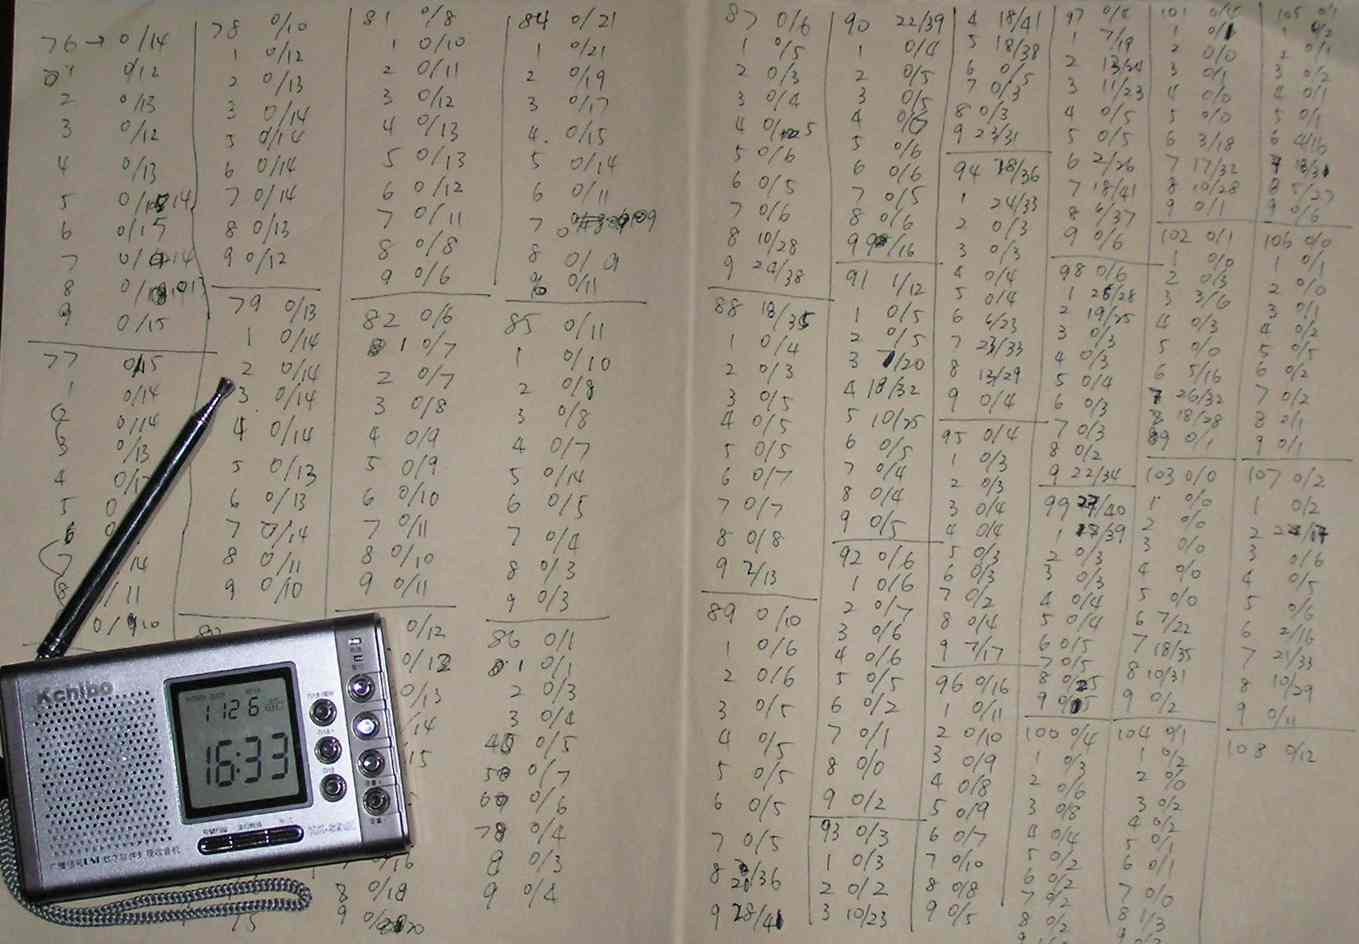 76→ 0/14
0/12
2 0/13
3 0/12
4 0/13
5 0/14
6 0/15
7 0/14
8
9 0/15
77 0/15
1 0/14
2 0/14
3 0/13
4
5
6
7 14
8 11
0/10
78 0/10
1 0/12
2 0/13
3 0/14
5 0/14
6 0/14
7 0/14
8 0/13
9 0/12
79 0/13
1 0/14
2 0/14
3 0/14
4 0/14
5 0/13
6 0/13
7 0/14
8 0/11
9 0/10
81 0/8
1 0/10
2 0/11
3 0/12
4 0/13
5 0/13
6 0/12
7 0/11
8 0/8
9 0/6
82 0/6
1 0/7
2 0/7
3 0/8
4 0/9
5 0/9
6 0/10
7 0/11
8 0/10
9 0/11
0/12
0/12
0/13
/14
15
0/16
8 0/18
9 0/20
84 0/21
1 0/21
2 0/19
3 0/17
4. 0/15
5 0/14
6 0/11
7 0/9
8 0/9
9 0/11
85 0/11
1 0/10
2 0/8
3 0/8
4 0/7
5 0/14
6 0/5
7 0/4
8 0/3
9 0/3
86 0/1
1 0/1
2 0/3
3 0/4
4 0/5
5 0/7
6 0/6
7 0/4
8 0/3
9 0/4
87 0/6
1 0/5
2 0/3
3 0/4
4 0/5
5 0/6
6 0/5
7 0/6
8 10/28
9 24/38
88 18/35
1 0/4
2 0/3
3 0/5
4 0/5
5 0/5
6 0/7
7 0/7
8 0/8
9 2/13
89 0/10
1 0/6
2 0/6
3 0/5
4 0/5
5 0/5
6 0/5
7 0/5
8 20/36
9 28/41
90 22/39
1 0/4
2 0/5
3 0/5
4 0/6
5 0/6
6 0/6
7 0/5
8 0/6
9 /16
91 1/12
1 0/5
2 0/5
3 /20
4 18/32
5 10/25
6 0/5
7 0/4
8 0/4
9 0/5
92 0/6
1 0/6
2 0/7
3 0/6
4 0/6
5 0/5
6 0/2
7 0/1
8 0/0
9 0/2
93 0/3
1 0/3
2 0/2
3 10/23
4 18/41
5 18/38
6 0/5
7 0/3
8 0/3
9 23/31
94 18/36
1 24/33
2 0/3
3 0/3
4 0/4
5 0/4
6 6/23
7 23/33
8 13/29
9 0/4
95 0/4
1 0/3
2 0/3
3 0/4
4 0/4
5 0/3
6 0/3
7 0/2
8 0/4
9 7/17
96 0/16
1 0/11
2 0/10
3 0/9
4 0/8
5 0/9
6 0/7
7 0/10
8 0/8
9 0/5
97 0/5
1 7/19
2 13/24
3 11/23
4 0/5
5 0/5
6 2/26
7 18/41
8 6/37
9 0/6
98 0/6
1 25/28
2 19/25
3 0/3
4 0/3
5 0/4
6 0/3
7 0/3
8 0/2
9 22/34
99 27/40
1 17/39
2 0/3
3 0/3
4 0/4
5 0/4
6 0/5
7 0/5
8 0/5
9 0/5
100 0/4
1 0/3
2 0/6
3 0/8
4 0/4
5 0/2
6 0/2
7 0/2
8 0/2
101
1 0/1
2 0/0
3 0/1
4 0/0
5 0/0
6 3/18
7 17/32
8 10/28
9 0/1
102 0/1
1 0/0
2 0/3
3 3/6
4 0/3
5 0/0
6 5/16
7 26/32
8 18/28
9 0/1
103 0/0
1 0/0
2 0/0
3 0/0
4 0/0
5 0/0
6 7/22
7 18/35
8 10/31
9 0/2
104 0/1
1 0/2
2 0/0
3 0/2
4 0/2
5 0/1
6 0/1
7 0/0
8 1/3
105 0/1
1 0/2
2 0/1
3 0/2
4 0/1
5 0/1
6 4/16
7 18/31
8 5/27
9 0/6
106 0/0
1 0/1
2 0/0
3 0/1
4 0/2
5 0/5
6 0/2
7 0/2
8 2/1
9 0/1
107 0/2
1 0/2
2
3 0/6
4 0/5
5 0/6
6 2/16
7 21/33
8 10/29
9 0/11
108 0/12
Kchibo
1126
16:33